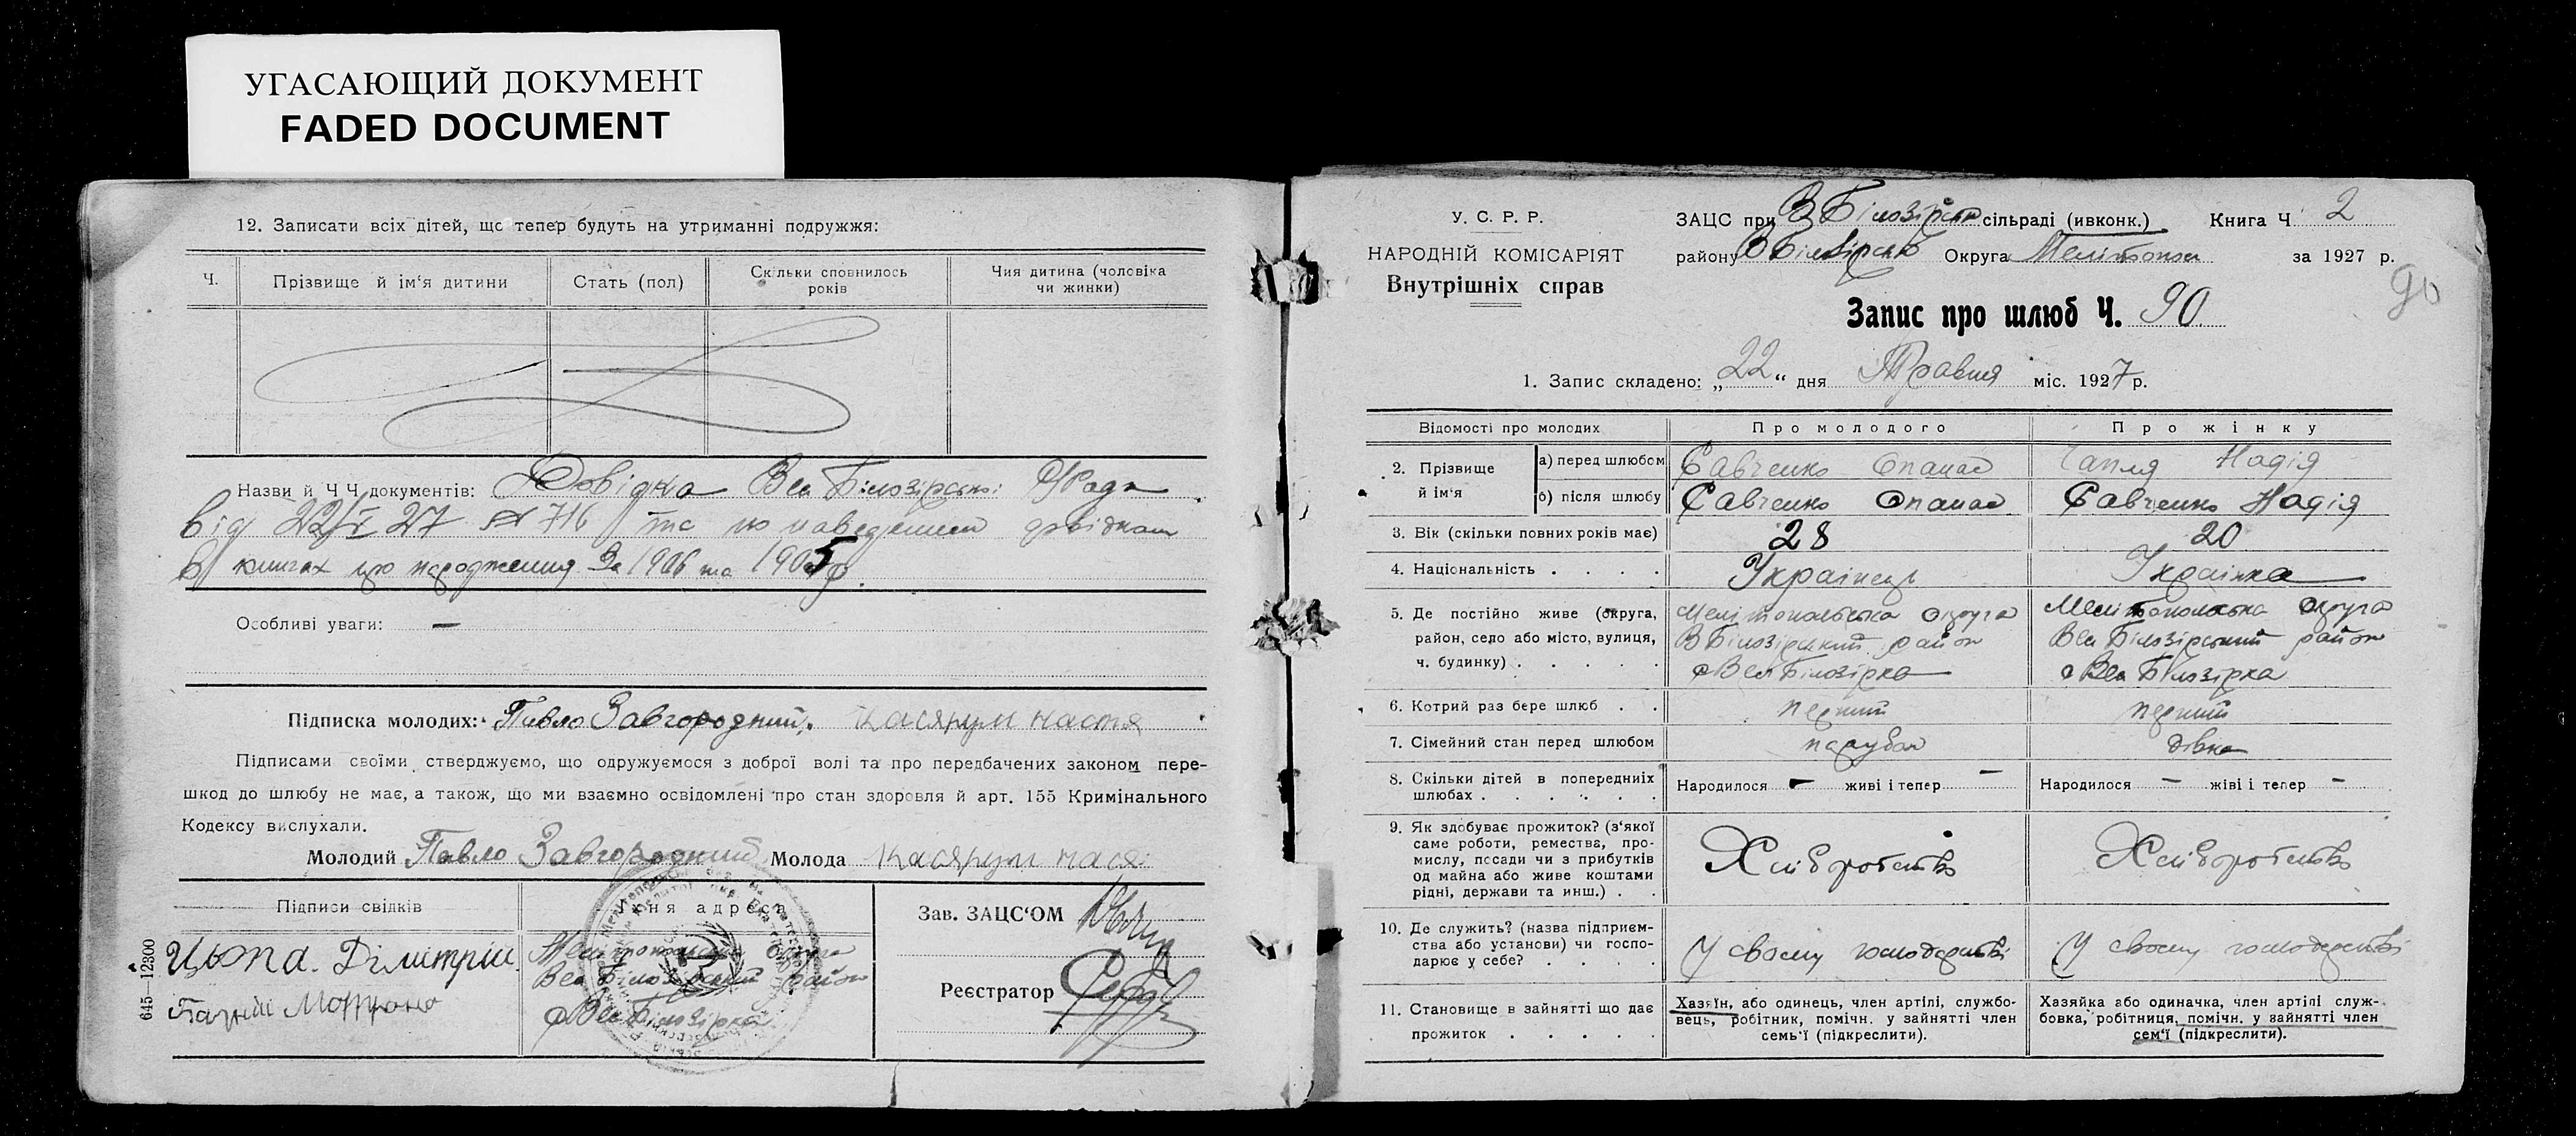 УГАСАЮЩИЙ ДОКУМЕНТ
FADED DOCUMENT
12. Записати всіх дітей, що тепер будуть на утриманні подружжя:
Ч. Прізвище й ім‘я дитини Стать (пол) Скільки сповнилось років Чия дитина (чоловіка чи жинки)
Назви й Ч Ч документів: Довідка Вел Білозірської С/Ради
від 22/V 27 № 716 та по наведеним довідкам
в книгах про народження за 1906 та 1905 р.
Особливі уваги: —
Підписка молодих: Павло Завгородний. Касярум настя
Підписами своїми стверджуємо, що одружуємося з доброї волі та про передбачених законом пере-
шкод до шлюбу не має, а також, що ми взаємно освідомлені про стан здоровля й арт. 155 Кримінального
Кодексу вислухали.
Молодий Павло Завгородний Молода Касярум настя
Підписи свідків Їхня адреса
Зав. ЗАЦС‘ОМ
Цьопа. Дімітрій Мелітопольська округа
Вел Білозірський район
Реєстратор
с Вел Білозірка
645—12300
У. С. Р. Р.
НАРОДНІЙ КОМІСАРІЯТ
Внутрішніх справ
ЗАЦС при В Білозірськ сільраді (ивконк.) Книга Ч 2
району В Білозірськ Округа Мелітопол за 1927 р.
90
Запис про шлюб Ч. 90
1. Запис складено: „22“ дня Травня міс. 1927 р.
Відомості про молодих Про молодого Про жінку
2. Прізвище й ім‘я
а) перед шлюбом Савченко Опанас Цапля Надія
б) після шлюбу Савченко Опанас Савченко Надія
3. Вік (скільки повних років має) 28 20
4. Національність . . . . Українець Українка
5. Де постійно живе (округа, Мелітопольська округа Мелітопольська округа
район, село або місто, вулиця, В Білозірський район Вел Білозірський район
ч. будинку) . . . . . с Вел Білозірка с Вел Білозірка
6. Котрий раз бере шлюб . . перший перший
7. Сімейний стан перед шлюбом парубок дівка
8. Скільки дітей в попередниіх Народилося — живі і тепер — Народилося — жіві і тепер —
шлюбах . . . . . .
9. Як здобуває прожиток? (з‘якої
саме роботи, ремества, про-
мислу, посади чи з прибутків Хліборобство Хліборобство
од майна або живе коштами
рідні, держави та инш.) . .
10. Де служить? (назва підприєм-
ства або установи) чи госпо- У своєму господарстві У своєму господарстві
дарює у себе? . . . .
11. Становище в зайнятті що дає Хазяїн, або одинець, член артілі, службо- Хазяйка або одиначка, член артілі служ-
прожиток . . . . . вець, робітник, помічн. у зайнятті член бовка, робітниця, помічн. у зайнятті член
семь‘ї (підкреслити). сем‘ї (підкреслити).